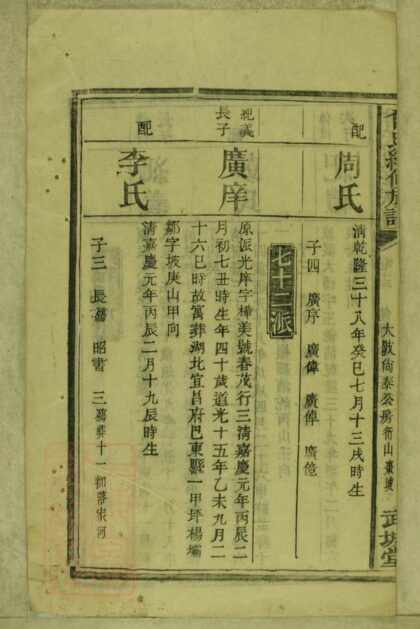 曾氏續修族譜
大啟尚泰公房衍山棗塅
武城堂
配
周氏
清乾隆三十八年癸巳七月十三戌時生
子四 廣序 廣偉 廣倬 廣億
七十二派
紀義
長子
廣庠
原派光庠字樺美號春茂行三清嘉慶元年丙辰二
月初七丑時生年四十歲道光十五年乙未九月二
十六巳時故寓葬湖北宜昌府巴東縣一甲坪楊壩
鄉字坡庚山甲向
配
李氏
清嘉慶元年丙辰二月十九辰時生
子三 長殤 昭書 三殤葬十一都落家河